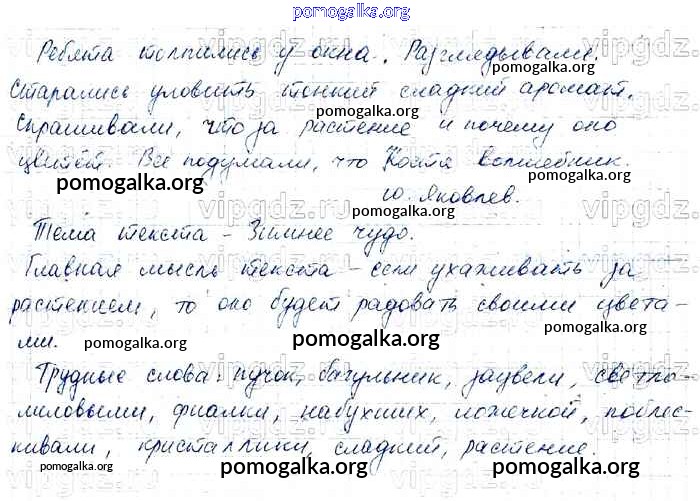 pomogalka.org
Ребята толпились у окна. Разглядывали.
pomogalka.org
Старались уловить тонкий сладкий аромат.
pomogalka.org
Спрашивали, что за растение и почему оно
цветёт. Все подумали, что Костя волшебник.
pomogalka.org
Ю. Яковлев.
pomogalka.org
Тема текста - Зимнее чудо.
pomogalka.org
Главная мысль текста - если ухаживать за
растением, то оно будет радовать своими цвета-
ми.
pomogalka.org pomogalka.org pomogalka.org
Трудные слова: пучок, багульник, зацвели, светло-
лиловыми, фиалки, набухших, ложечкой, поблес-
кивали, кристаллики, сладкий, растение.
pomogalka.org pomogalka.org pomogalka.org